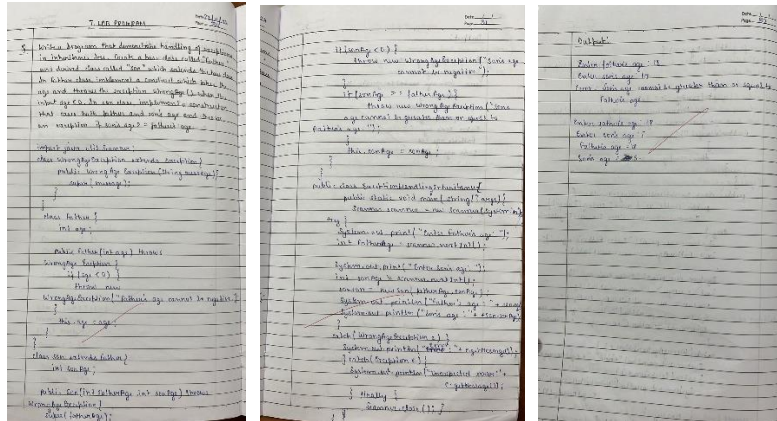 7. LAB PROGRAM
Write a program that demonstrates handling of exceptions
in inheritance tree. Create a base class called "Father"
and derived class called "Son" which extends the base class.
In father class, implement a constructor which takes the
age and throws the exception WrongAge() when the
input age < 0. In son class, implement a constructor
that cases both father and son's age and throws
an exception if son's age > = father's age.
import java.util.Scanner;
class WrongAgeException extends Exception {
public WrongAgeException (String message) {
super (message);
}
}
class Father {
int age;
public Father (int age) throws
WrongAgeException {
if (age < 0) {
throw new
WrongAgeException ("Father's age cannot be negative.")
}
this.age = age;
}
}
class Son extends Father {
int sonAge;
public Son (int fatherAge, int sonAge) throws
WrongAgeException {
super (fatherAge);
if (sonAge < 0) {
throw new WrongAgeException ("Son's age
cannot be negative");
}
if (sonAge > = fatherAge) {
throw new WrongAgeException ("Son's
age cannot be greater than or equal to
Father's age ");
}
this.sonAge = sonAge;
}
}
public class ExceptionHandlingInheritance {
public static void main (String[] args) {
Scanner scanner = new Scanner (System.in)
try {
System.out.print ("Enter Father's age: ");
int fatherAge = scanner.nextInt();
System.out.print ("Enter Son's age: ");
int sonAge = scanner.nextInt();
Son son = new Son (fatherAge, sonAge);
System.out.println ("Father's age : " + son.age)
System.out.println ("Son's age : " + son.sonAge)
}
catch (WrongAgeException e) {
System.out.println ( + e.getMessage());
} catch (Exception e) {
System.out.println ("Unexpected error: " +
e.getMessage());
} finally {
scanner.close(); }
}
Output:
Enter father's age : 18
Enter son's age : 19
Error : Son's age cannot be greater than or equal to
Father's age
Enter father's age : 18
Enter son's age :
Father's age :
Son's age :